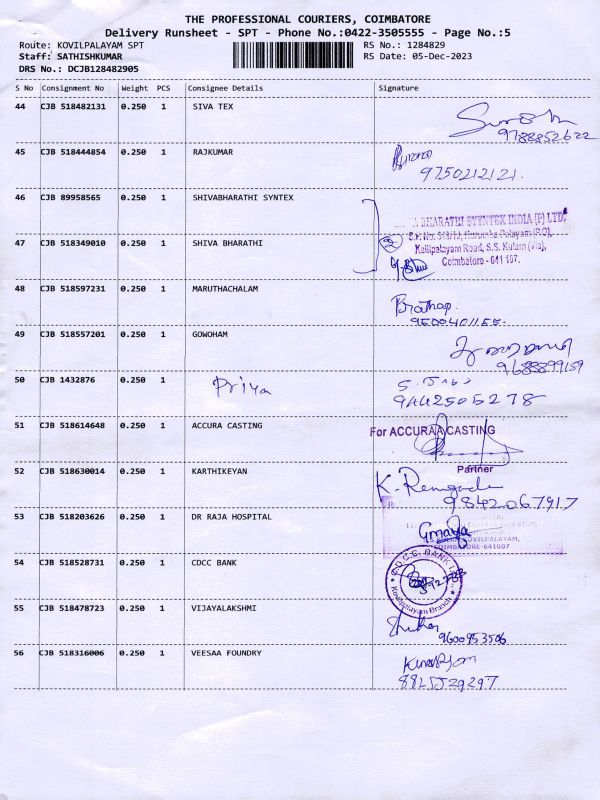 THE PROFESSIONAL COURIERS, COIMBATORE
Delivery Runsheet - SPT - Phone No.:0422-3505555 - Page No.:5
Route: KOVILPALAYAM SPT
RS No.: 1284829
Staff: SATHISHKUMAR
RS Date: 05-Dec-2023
DRS No.: DCJB128482905
S No Consignment No Weight PCS Consignee Details Signature
44 CJB 518482131 0.250 1 SIVA TEX
9788852622
45 CJB 518444854 0.250 1 RAJKUMAR
9750212121.
46 CJB 89958565 0.250 1 SHIVABHARATHI SYNTEX
BHARATHI SYNTEX INDIA (P) LTD.
Kalipalayam Road, S.S. Kulam (Via),
Coimbatore - 641 107.
47 CJB 518349010 0.250 1 SHIVA BHARATHI
48 CJB 518597231 0.250 1 MARUTHACHALAM
Prathap
49 CJB 518557201 0.250 1 GOWOHAM
9688899159
50 CJB 1432876 0.250 1 Priya
9442505278
51 CJB 518614648 0.250 1 ACCURA CASTING
For ACCURAA CASTING
Partner
52 CJB 518630014 0.250 1 KARTHIKEYAN
9842067917
53 CJB 518203626 0.250 1 DR RAJA HOSPITAL
KOVILPALAYAM,
COIMBATORE-641007
54 CJB 518528731 0.250 1 CDCC BANK
C.D.C.C. BANK LTD.
Kovilpalayam Branch
55 CJB 518478723 0.250 1 VIJAYALAKSHMI
9600953506
56 CJB 518316006 0.250 1 VEESAA FOUNDRY
8825529297